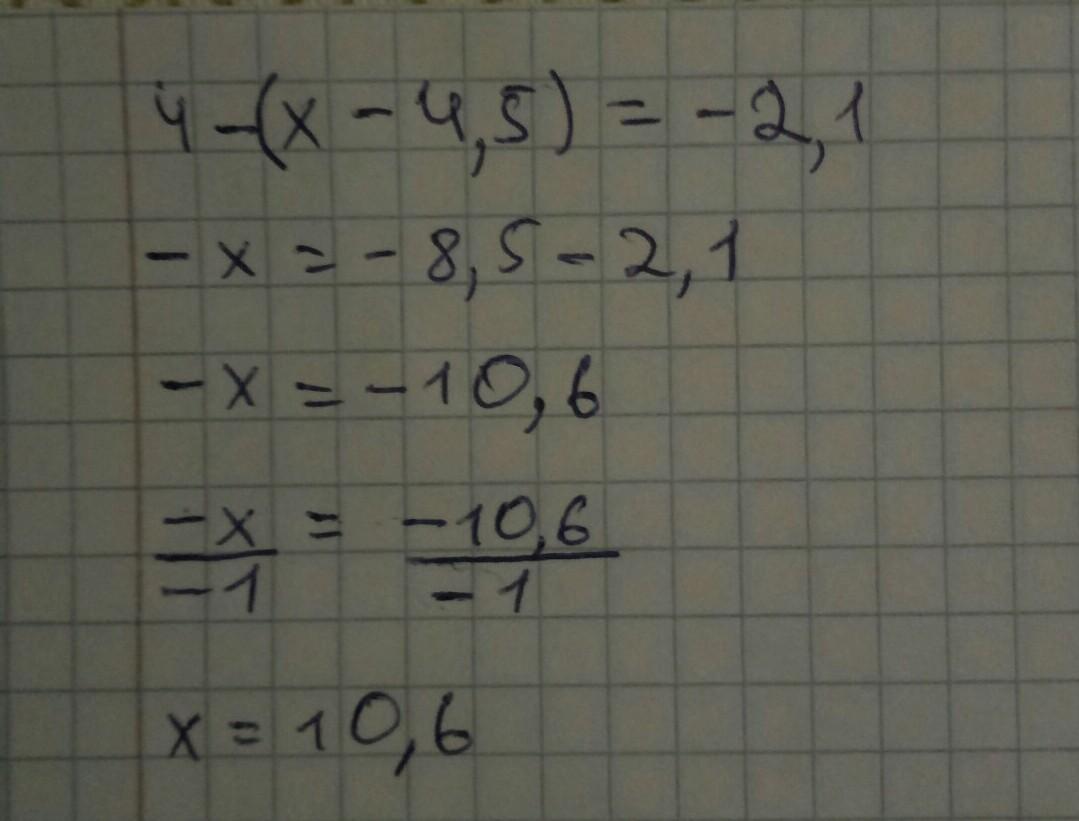 4 - (x - 4,5) = - 2,1
- x = - 8,5 - 2,1
- x = - 10,6
-x/-1 = -10,6/-1
x = 10,6